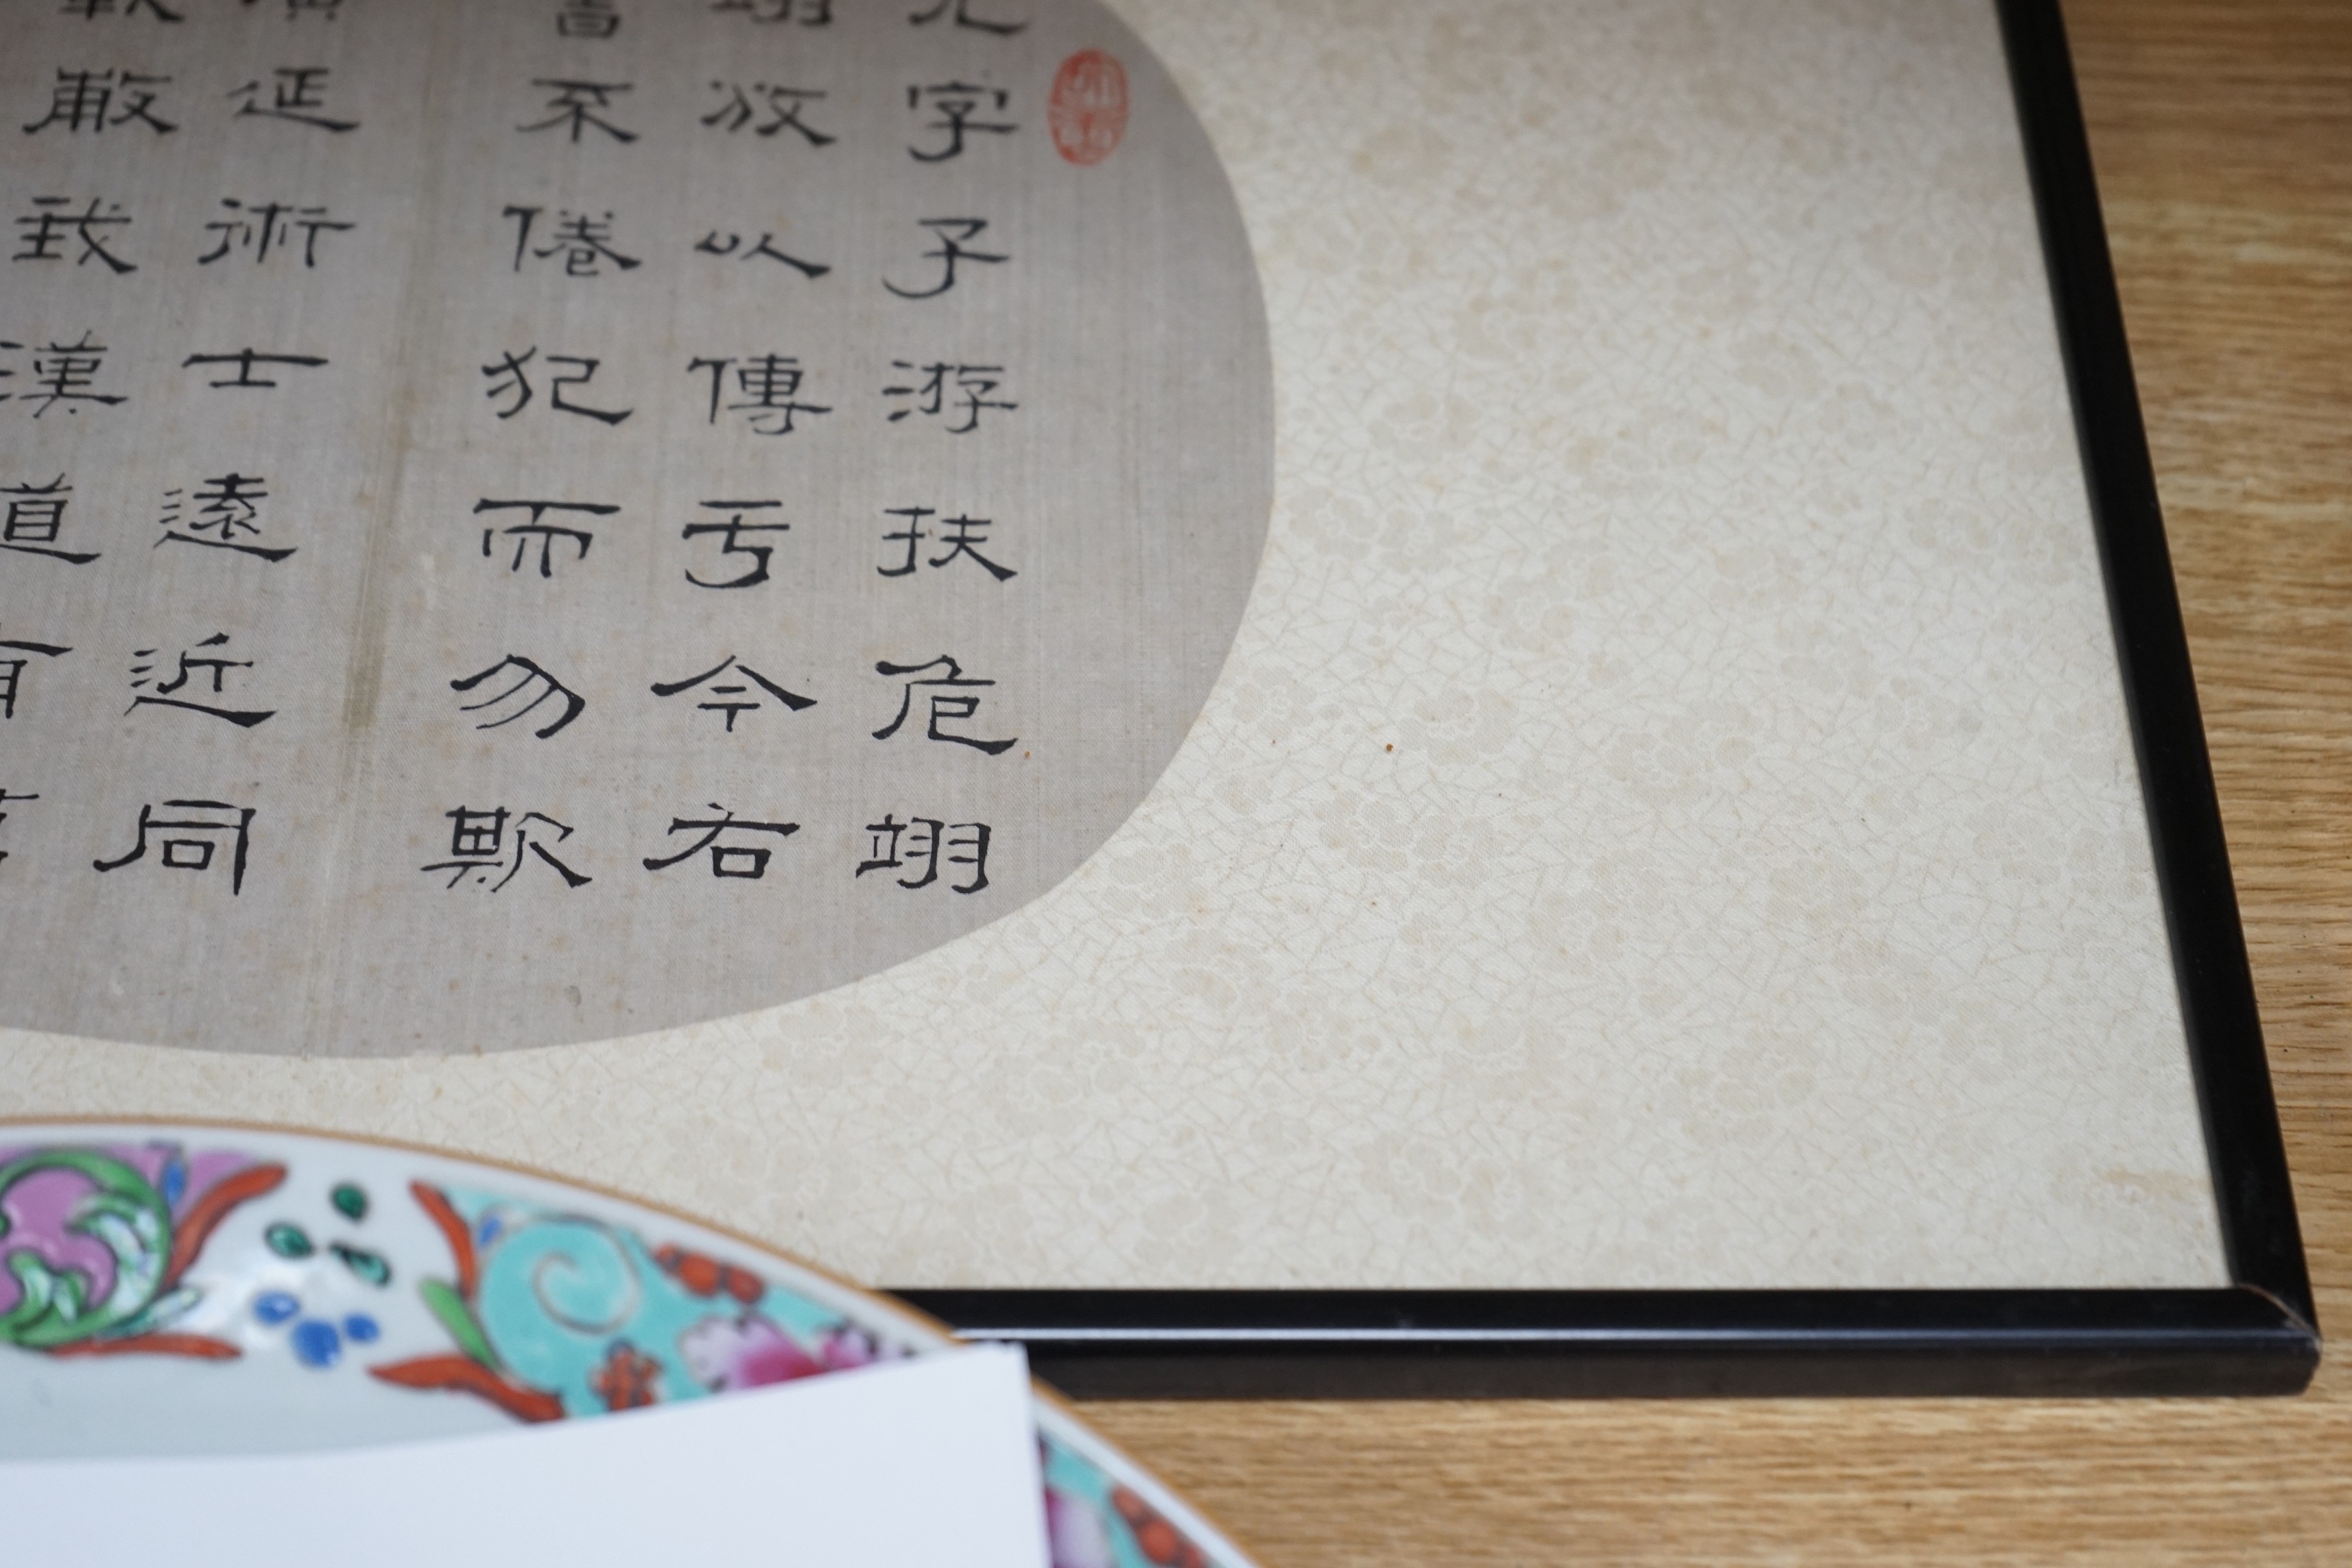 字子游扶危翊
放以傳亐今右
不倦犯而勿欺
延術士遠近同
我漢道有